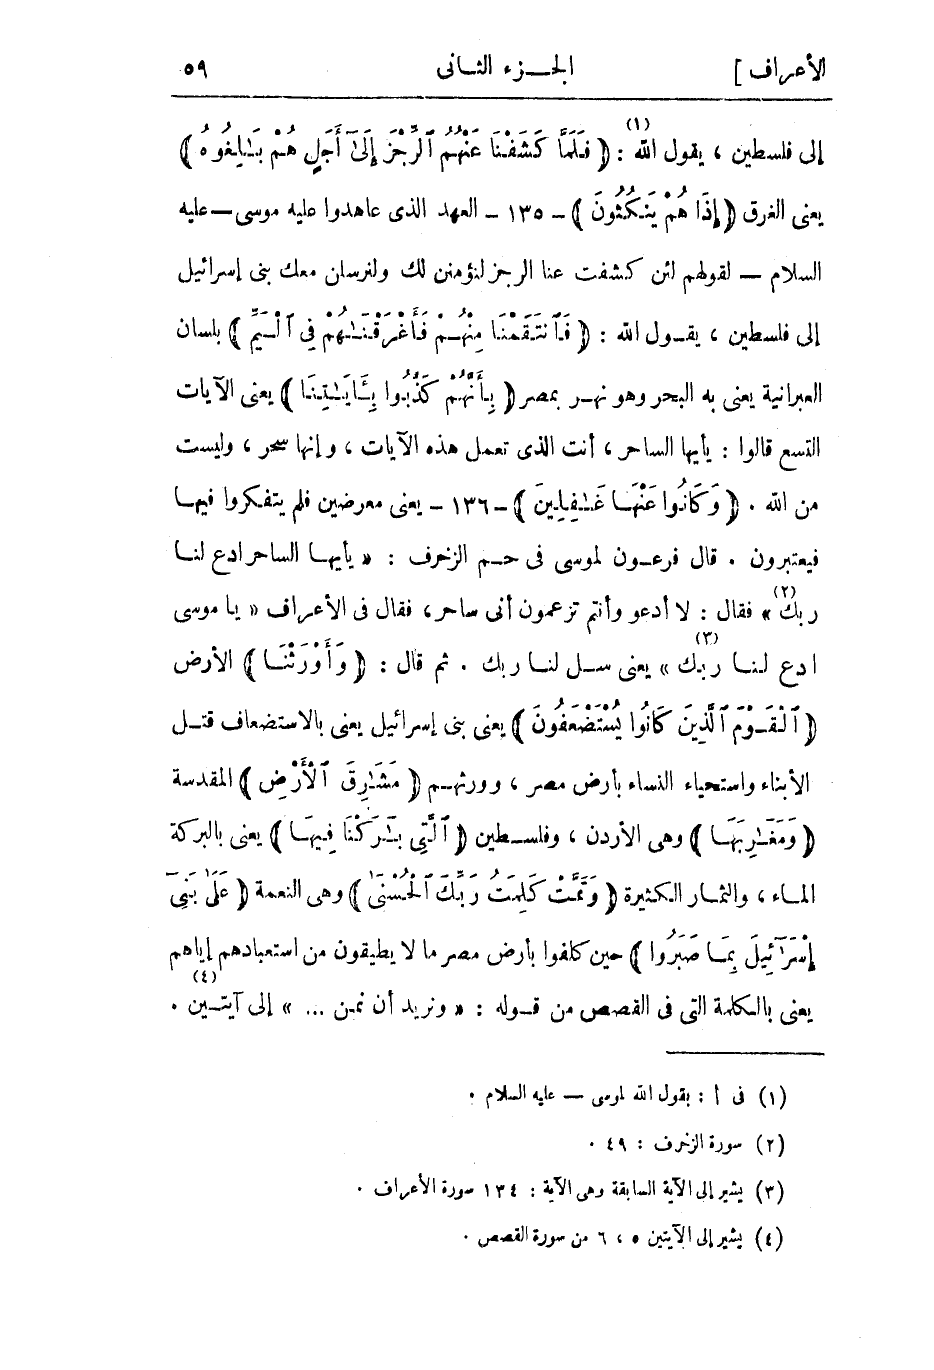 الأعراف ] الجـــزء الثـانى ٥٩
إلى فلسطين ، يقول الله (١) : ﴿ فَلَمَّا كَشَفْنَا عَنْهُمُ ٱلرِّجْزَ إِلَىٰٓ أَجَلٍ هُم بَـٰلِغُوهُ ﴾
يعنى الغرق ﴿ إِذَا هُمْ يَنكُثُونَ ﴾ - ١٣٥ - العهد الذى عاهدوا عليه موسى — عليه
السلام — لقولهم لئن كشفت عنا الرجز لنؤمنن لك ولنرسلن معك بنى إسرائيل
إلى فلسطين ، يقـول الله : ﴿ فَٱنتَقَمْنَا مِنْهُـمْ فَأَغْرَقْنَـٰهُمْ فِى ٱلْـيَمِّ ﴾ بلسان
العبرانية يعنى به البحر وهو نهـر بمصر ﴿ بِأَنَّهُمْ كَذَّبُوا بِـَٔايَـٰتِنَا ﴾ يعنى الآيات
التسع قالوا : يأيها الساحر ، أنت الذى تعمل هذه الآيات ، وإنها سحر ، وليست
من الله . ﴿ وَكَانُوا عَنْهَا غَـٰفِلِينَ ﴾ - ١٣٦ - يعنى معرضين فلم يتفكروا فيهـا
فيعتبرون . قال فرعـون لموسى فى حـم الزخرف : « يأيهـا الساحر ادع لنـا
ربك (٢) » فقال : لا أدعو وأنتم تزعمون أنى ساحر ، فقال فى الأعراف « يا موسى
ادع لنـا ربك (٣) » يعنى سـل لنـا ربك . ثم قال : ﴿ وَأَوْرَثْنَـا ﴾ الأرض
﴿ ٱلْقَـوْمَ ٱلَّذِينَ كَانُوا يُسْتَضْعَفُونَ ﴾ يعنى بنى إسرائيل يعنى بالاستضعاف قتـل
الأبناء واستحياء النساء بأرض مصر ، وورثهـم ﴿ مَشَـٰرِقَ ٱلْأَرْضِ ﴾ المقدسة
﴿ وَمَغَـٰرِبَهَـا ﴾ وهى الأردن ، وفلسـطين ﴿ ٱلَّتِى بَـٰرَكْنَا فِيهَـا ﴾ يعنى بالبركة
المـاء ، والثمـار الكثيرة ﴿ وَتَمَّتْ كَلِمَتُ رَبِّكَ ٱلْحُسْنَىٰ ﴾ وهى النعمة ﴿ عَلَىٰ بَنِىٓ
إِسْرَٰٓءِيلَ بِمَـا صَبَرُوا ﴾ حين كلفوا بأرض مصر ما لا يطيقون من استعبادهم إياهم
يعنى بالكلمة التى فى القصص من قـوله : « ونريد أن نمن ... » إلى آيتـين (٤) .
(١) فى أ : يقول الله لموسى — عليه السلام .
(٢) سورة الزخرف : ٤٩ .
(٣) يشير إلى الآية السابقة وهى الآية : ١٣٤ سورة الأعراف .
(٤) يشير إلى الآيتين ٥ ، ٦ من سورة القصص .